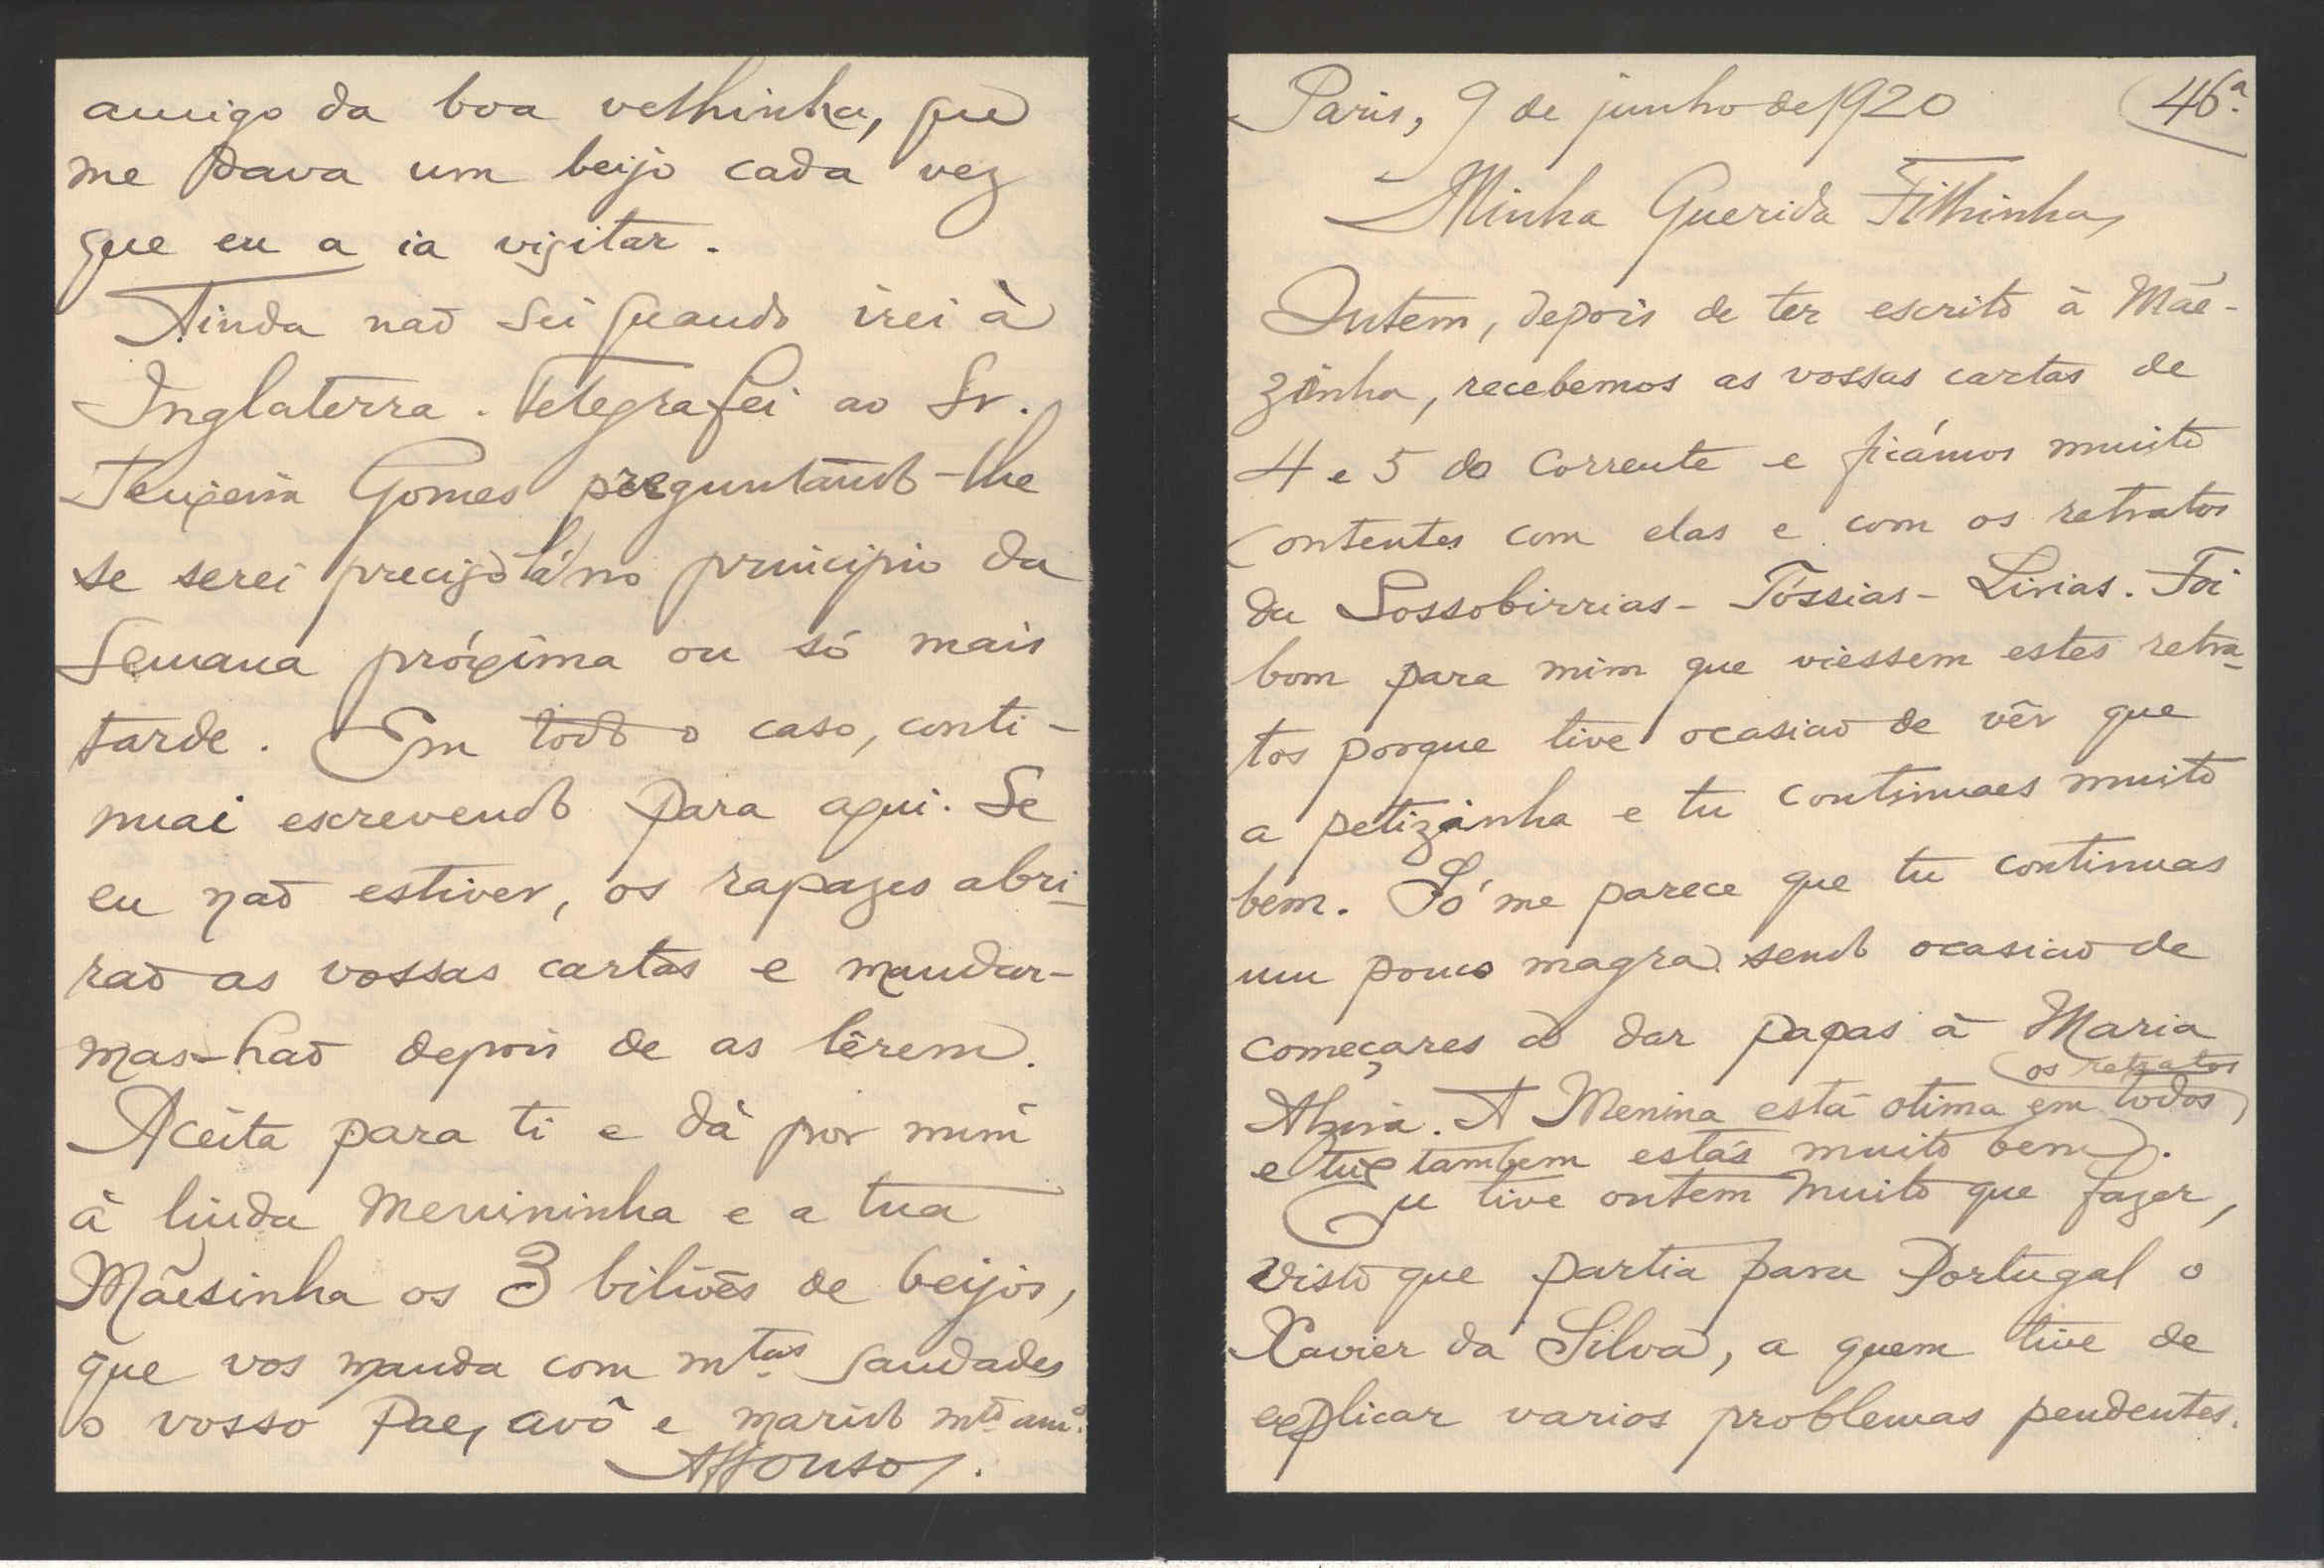 amigo da boa velhinha, que
me dava um beijo cada vez
que eu a ia visitar.
Ainda não sei quando irei à
Inglaterra. Telegrafei ao Sr.
Teixeira Gomes preguntando-lhe
se serei preciso lá no principio da
semana próxima ou só mais
tarde. Em todo o caso, conti-
nuai escrevendo para aqui. Se
eu não estiver, os rapazes abri-
rão as vossas cartas e mandar-
mas-hão depois de as lêrem.
Aceita para ti e dá por mim
à linda Menininha e a tua
Mãesinha os 3 biliões de beijos,
que vos manda com m.tas saudades
o vosso Pae, avô e marido m.to am.o
Affonso.
Paris, 9 de junho de 1920 46ª.
Minha Querida Filhinha,
Ontem, depois de ter escrito à Mãe-
zinha, recebemos as vossas cartas de
4 e 5 do corrente e ficámos muito
contentes com elas e com os retratos
da Sossobirrias-Tóssias-Lirias. Foi
bom para mim que viessem estes retra-
tos porque tive ocasião de vêr que
a petizinha e tu continuaes muito
bem. Só me parece que tu continuas
um pouco magra sendo ocasião de
começares a dar papas à Maria
Alzira. A Menina está otima em todos os retratos,
e tu tambem estás muito bem.
Eu tive ontem muito que fazer,
visto que partia para Portugal o
Xavier da Silva, a quem tive de
explicar varios problemas pendentes.